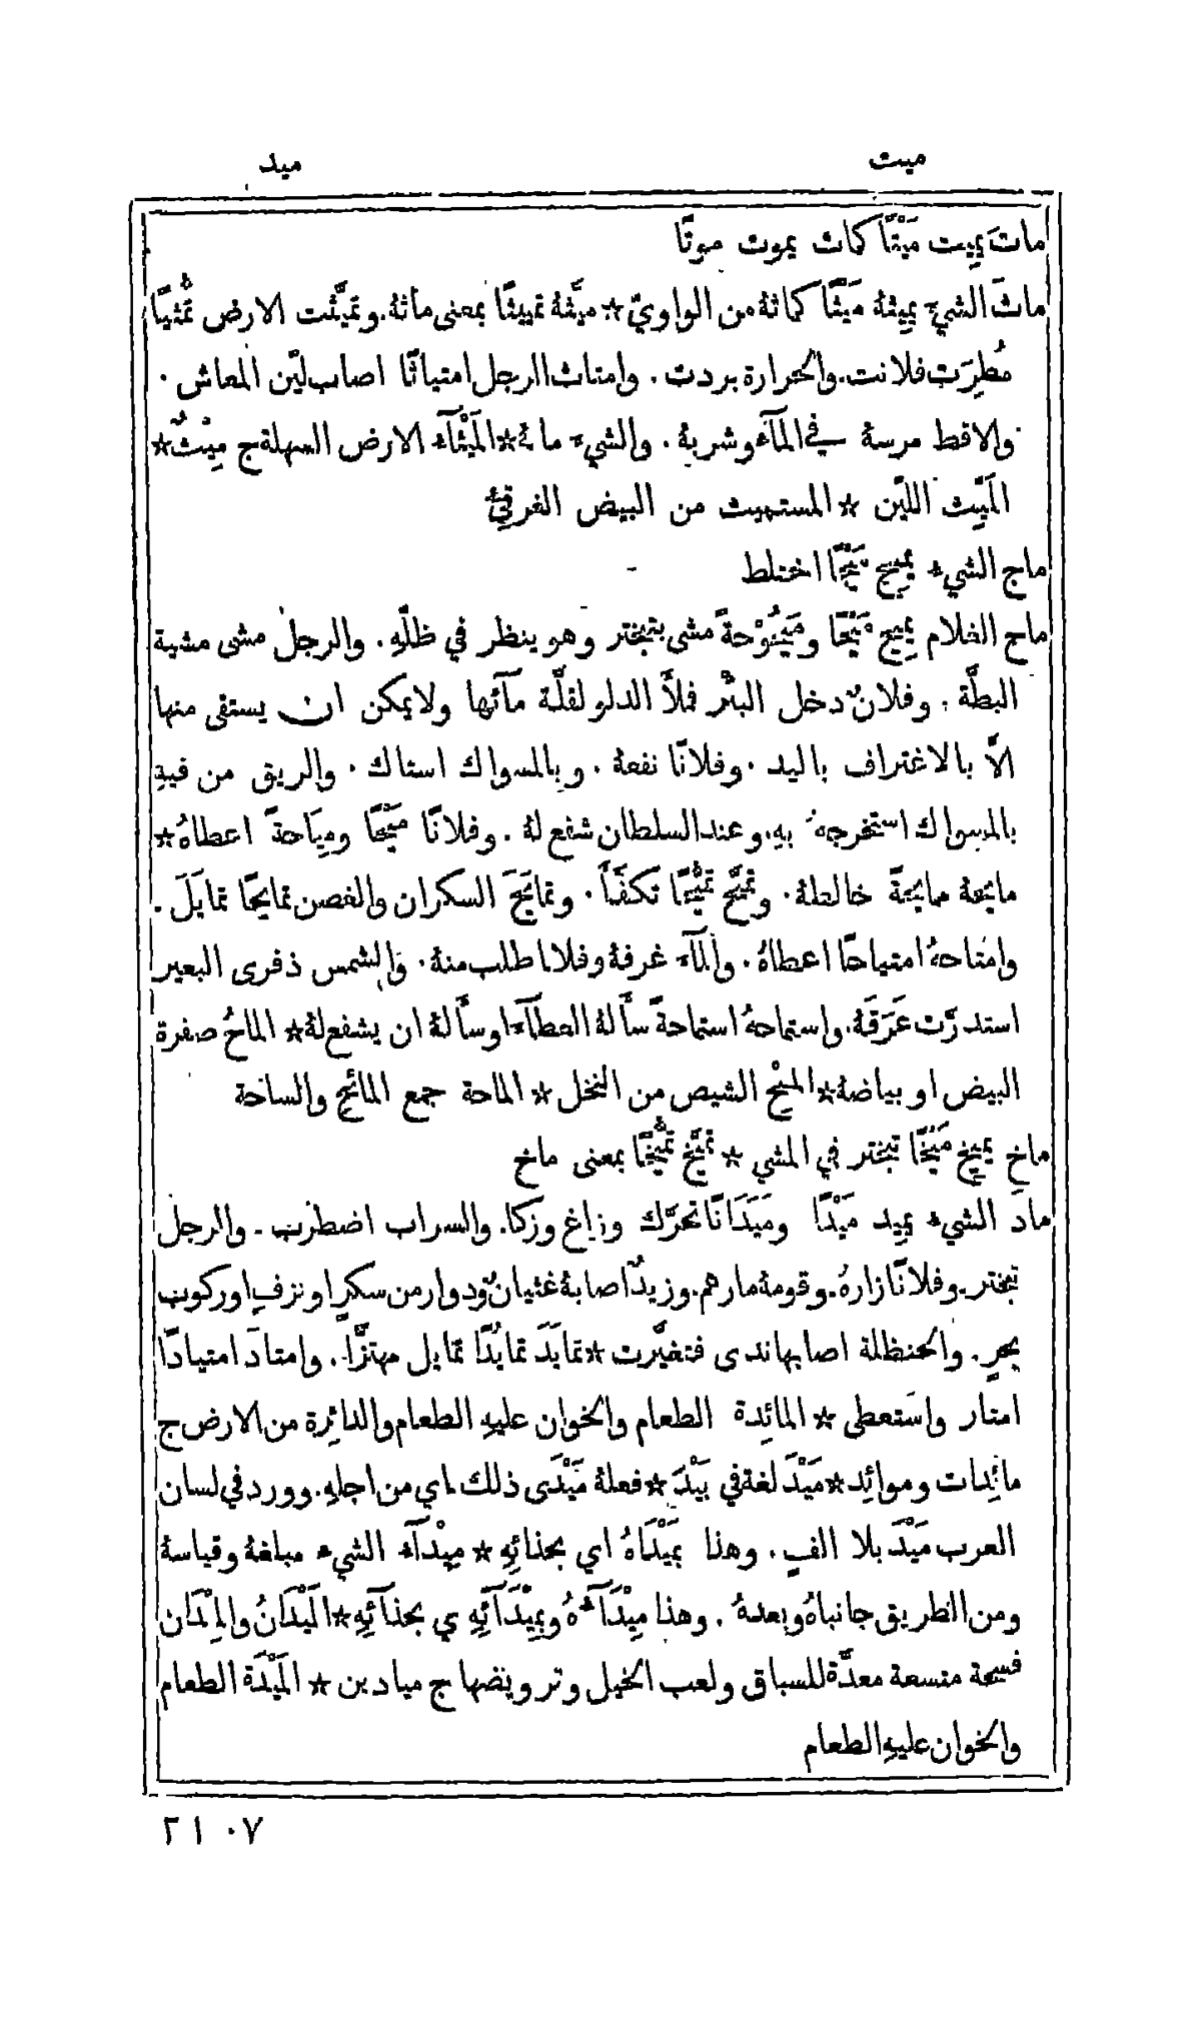 ميت
ميد
ماتَ يَمِيت مَيْتًا كمات يموت موتًا
ماثَ الشيءَ يميثهُ مَيْثًا كماثهُ من الواويّ ☆ ميَّثهُ تمييثًا بمعنى ماثهُ. وتميَّثت الارض تميُّثًا
مُطِرَت فلانت. والحرارة بردت. وامتاث الرجل امتياثًا اصاب ليّن المعاش.
والاقط مرسهُ في المآءِ وشربهُ. والشيءَ ماثهُ ☆ المَيْثآء الارض السهلة ج مِيْثٌ ☆
المَيِّث الليّن ☆ المستميت من البيض الغرقئ
ماج الشيء يميج مَيْجًا اختلط
ماح الغلام يميح مَيْحًا ومَيْحُوْحةً مشى بتبختر وهو ينظر في ظلّهِ. والرجل مشى مشية
البطَّة. وفلانٌ دخل البئر فملأَ الدلو لقلَّة مآئها ولا يمكن ان يستقى منها
الاَّ بالاغتراف باليد. وفلانًا نفعهُ. وبالمسواك استاك. والريق من فيهِ
بالمسواك استخرجهُ بهِ. وعند السلطان شفع لهُ. وفلانًا مَيْحًا ومِيَاحةً اعطاهُ ☆
مايحهُ ممايحةً خالطهُ. وتميَّح تميُّحًا تكفَّأَ. وتمايَحَ السكران والغصن تمايحًا تمايَلَ.
وامتاحهُ امتياحًا اعطاهُ. والمآءَ غرفهُ وفلانا طلب منهُ. والشمس ذفرى البعير
استدرَّت عَرَقَهُ. واستماحهُ استماحةً سأَلهُ العطآءَ او سأَلهُ ان يشفع لهُ ☆ الماحُ صفرة
البيض او بياضهُ ☆ المِيْح الشيص من النخل ☆ الماحة جمع المائح والساحة
ماخ يميخ مَيْخًا تبختر في المشي ☆ تميَّخ تميُّخًا بمعنى ماخ
مادَ الشيء يميد مَيْدًا ومَيَدَانًا تحرَّك وزاغ وزكا. والسراب اضطرب. والرجل
تبختر. وفلانًا زارهُ. وقومهُ مارهم. وزيدٌ اصابهُ غثيانٌ ودوار من سكرٍ او نزفٍ او ركوب
بحرٍ. والحنظلة اصابها ندى فتغيَّرت ☆ تمايَدَ تمايُدًا تمايل مهتزًّا. وامتادَ امتيادًا
امتار واستعطى ☆ المائِدة الطعام والخوان عليهِ الطعام والدائِرة من الارض ج
مائِدات وموائِد ☆ مَيْدَ لغة في بَيْدَ ☆ فعلهُ مَيْدَى ذلك اي من اجلهِ. وورد في لسان
العرب مَيْدَ بلا الفٍ. وهذا بمَيْدَاهُ اي بحذائِهِ ☆ مِيْدَآء الشيء مبلغهُ وقياسهُ
ومن الطريق جانباهُ وبعدهُ. وهذا مِيْدَآءهُ وبمِيْدَآئِهِ ي بحذآئِهِ ☆ المَيْدَانُ والمِيْدَان
فسحة متسعة معدَّة للسباق ولعب الخيل وترويضها ج ميادين ☆ المَيْدَة الطعام
والخوان عليهِ الطعام
٢١٠٧